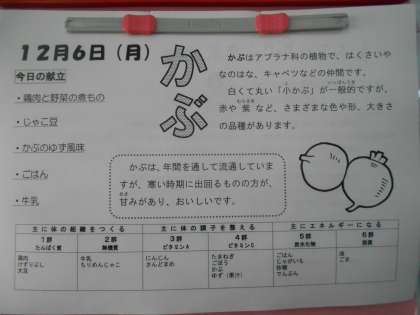 12月6日（月）
かぶ
今日の献立
・鶏肉と野菜の煮もの
・じゃこ豆
・かぶのゆず風味
・ごはん
・牛乳
かぶはアブラナ科の植物で、はくさいや
なのはな、キャベツなどの仲間です。
白くて丸い「小かぶ」が一般的ですが、
赤や紫など、さまざまな色や形、大きさ
の品種があります。
かぶは、年間を通して流通していま
すが、寒い時期に出回るものの方が、
甘みがあり、おいしいです。
主に体の組織をつくる 主に体の調子を整える 主にエネルギーになる
1群 2群 3群 4群 5群 6群
たんぱく質 無機質 ビタミンA ビタミンC 炭水化物 脂質
鶏肉 牛乳 にんじん たまねぎ ごはん 油
けずりぶし ちりめんじゃこ さんどまめ ごぼう じゃがいも ごま
大豆 かぶ 砂糖
ゆず（果汁） でんぷん